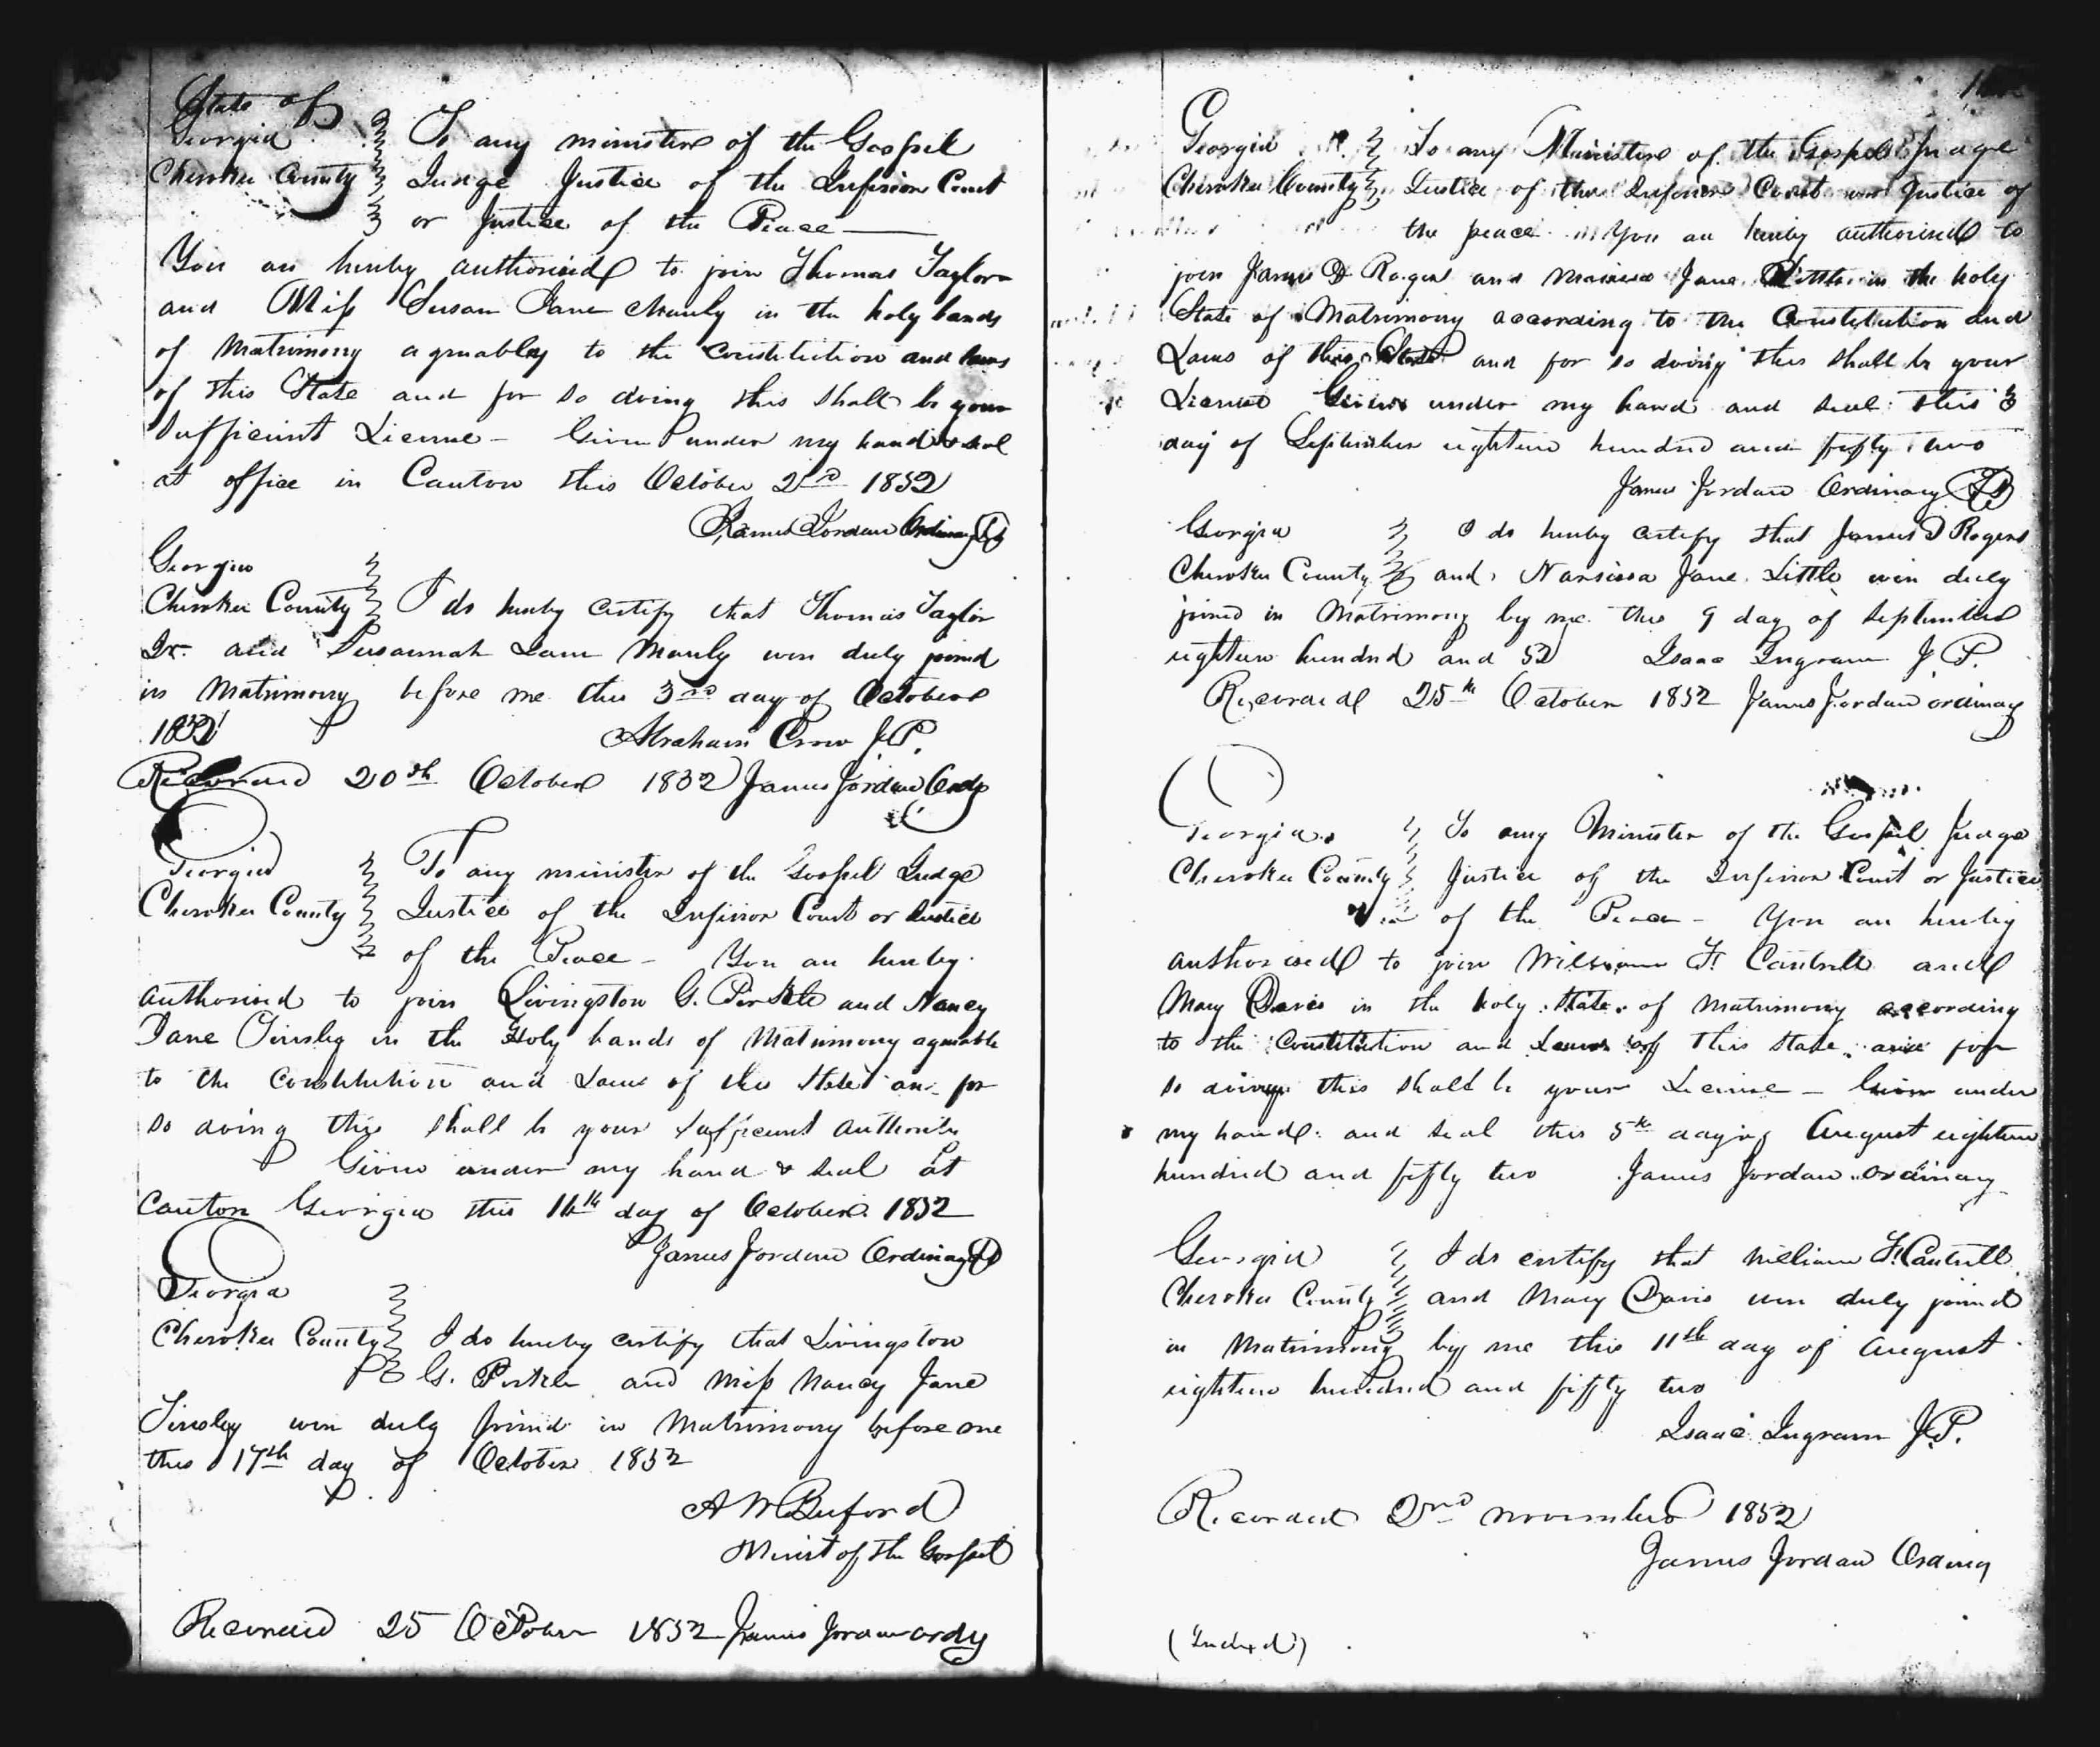 State of
Georgia
Cherokee County
To any minister of the Gospel
Judge Justice of the Inferior Court
or Justice of the Peace —
You are hereby authorised to join Thomas Taylor
and Miss Susan Jane Manly in the holy bands
of Matrimony agreeabley to the Constitution and laws
of this State and for so doing this shall be your
Sufficient License – Given under my hand & seal
at office in Canton this October 2nd 1852
James Jordan Ordinary LS
Georgia
Cherokee County I do hereby certify that Thomas Taylor
Jr. and Susannah Jane Manly were duly joined
in Matrimony before me this 3rd day of October
1852
Abraham Crow J.P.
Recorded 20th October 1852 James Jordan Ordy
Georgia To any minister of the Gospel Judge
Cherokee County Justice of the Inferior Court or Justice
of the Peace – You are hereby
authorised to join Livingston G. Perkle and Nancy
Jane Tinsley in the Holy bands of Matrimony agreeable
to the Constitution and Laws of this State an for
so doing this shall be your sufficient authority
Given under my hand & seal at
Canton Georgia this 16th day of October 1852
James Jordan Ordinary LS
Georgia
Cherokee County I do hereby certify that Livingston
G. Perkle and Miss Nancy Jane
Tinsley were duly joined in Matrimony before me
this 17th day of October 1852
A W Buford
Minist of the Gospel
Recorded 25 October 1852 James Jordan ordy
Georgia To any Minister of the Gospel Judge
Cherokee County Justice of the Inferior Court or Justice of
the peace You are hereby authorised to
join James D Rogers and Jane Little in the holy
State of Matrimony according to the Constitution and
Laws of this State and for so doing this shall be your
License Given under my hand and seal this 3
day of September eighteen hundred and fifty two
James Jordan Ordinary LS
Georgia I do hereby certify that James D Rogers
Cherokee County and Narsissa Jane Little were duly
joined in Matrimony by me this 9 day of September
eighteen hundred and 52 Isaac Ingram J.P.
Recorded 25th October 1852 James Jordan ordinary
Georgia To any Minister of the Gospel Judge
Cherokee County Justice of the Inferior Court or Justice
of the Peace – You are hereby
authorised to join William F. Cantrell and
Mary Davis in the holy State of Matrimony according
to the Constitution and Laws of this State and for
so doing this shall be your License – Given under
my hand and seal this 5th day of August eighteen
hundred and fifty two James Jordan Ordinary
Georgia I do certify that William F. Cantrell
Cherokee County and Mary Davis were duly joined
in Matrimony by me this 11th day of August
eighteen hundred and fifty two
Isaac Ingram J.P.
Recorded 2nd November 1852
James Jordan Ordinary
(Indexd)